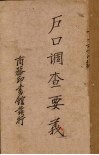 戶口調查要義
商務印書館發行